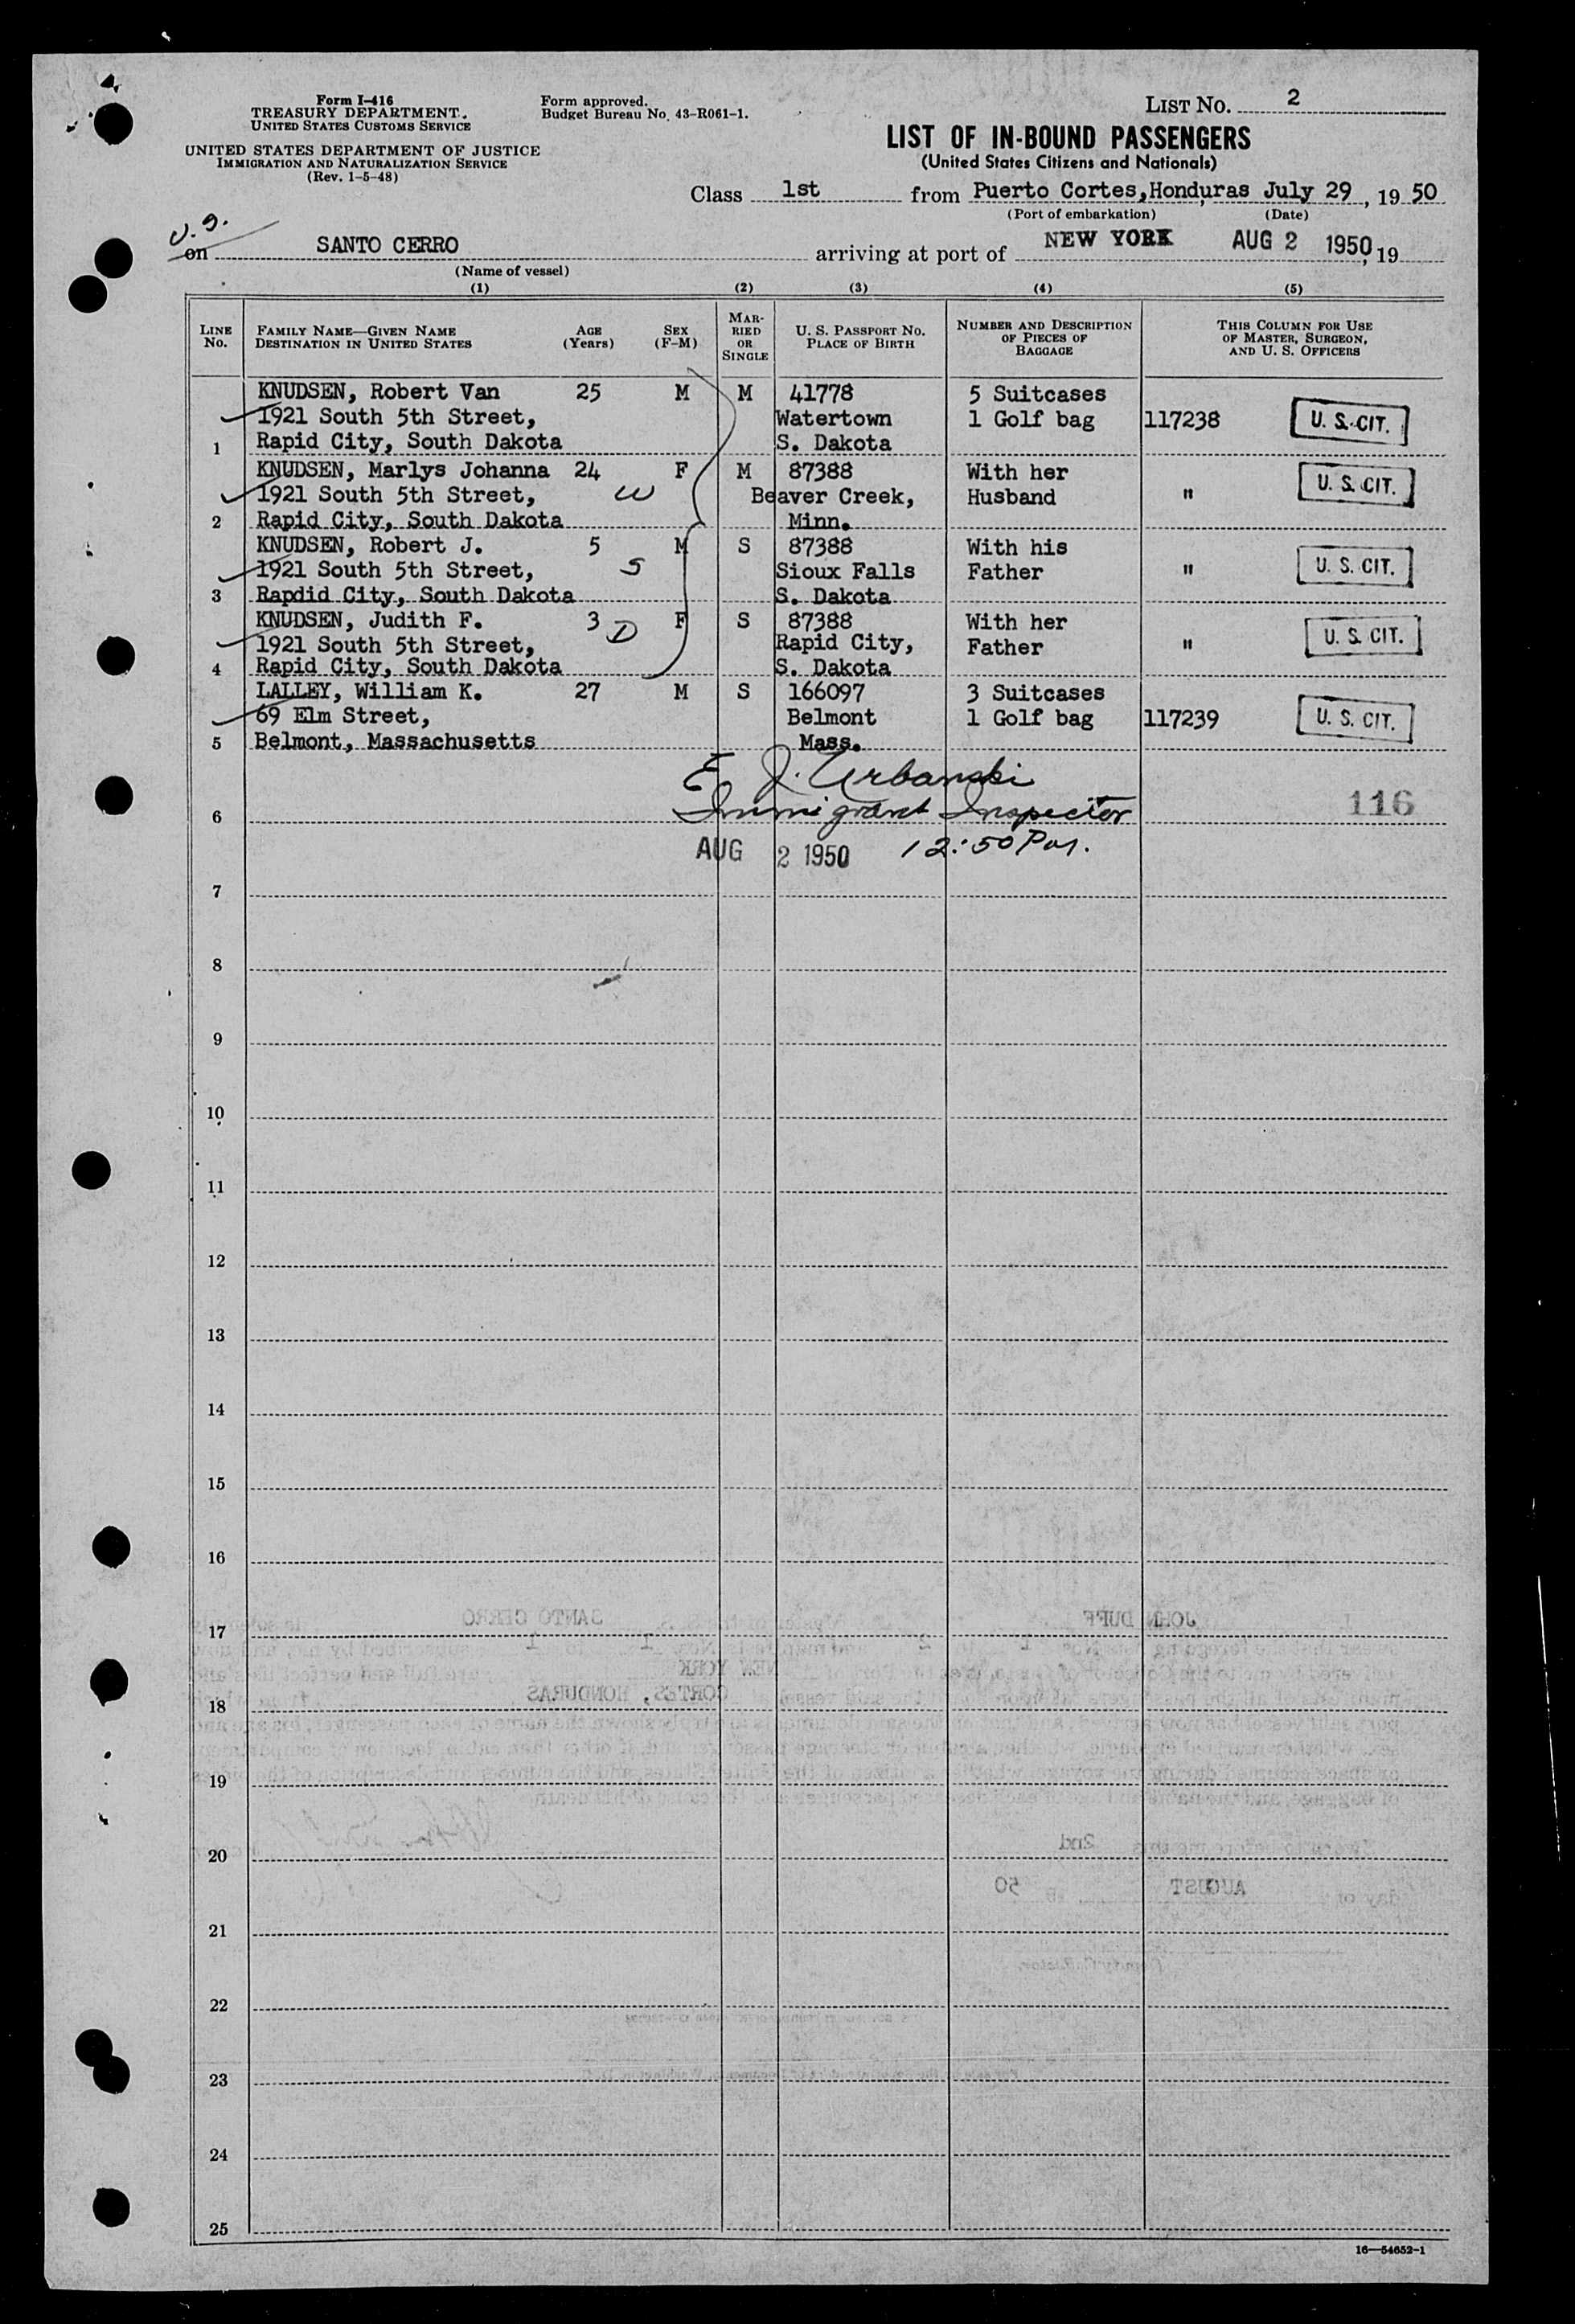 Form I-416
TREASURY DEPARTMENT.
UNITED STATES CUSTOMS SERVICE
UNITED STATES DEPARTMENT OF JUSTICE
IMMIGRATION AND NATURALIZATION SERVICE
(Rev. 1-5-48)
Form approved.
Budget Bureau No. 43-R061-1.
LIST No. 2
LIST OF IN-BOUND PASSENGERS
(United States Citizens and Nationals)
Class 1st from Puerto Cortes, Honduras July 29, 19 50
(Port of embarkation) (Date)
on SANTO CERRO arriving at port of NEW YORK AUG 2 1950, 19
(Name of vessel)
(1) (2) (3) (4) (5)
LINE No. FAMILY NAME—GIVEN NAME DESTINATION IN UNITED STATES AGE (Years) SEX (F-M) MARRIED OR SINGLE U. S. PASSPORT NO. PLACE OF BIRTH NUMBER AND DESCRIPTION OF PIECES OF BAGGAGE THIS COLUMN FOR USE OF MASTER, SURGEON, AND U. S. OFFICERS
KNUDSEN, Robert Van 25 M M 41778 5 Suitcases
1921 South 5th Street, Watertown 1 Golf bag 117238 U. S. CIT.
1 Rapid City, South Dakota S. Dakota
KNUDSEN, Marlys Johanna 24 F M 87388 With her
1921 South 5th Street, W Beaver Creek, Husband " U. S. CIT.
2 Rapid City, South Dakota Minn.
KNUDSEN, Robert J. 5 M S 87388 With his
1921 South 5th Street, S Sioux Falls Father " U. S. CIT.
3 Rapdid City, South Dakota S. Dakota
KNUDSEN, Judith F. 3 D F S 87388 With her
1921 South 5th Street, Rapid City, Father " U. S. CIT.
4 Rapid City, South Dakota S. Dakota
LALLEY, William K. 27 M S 166097 3 Suitcases
69 Elm Street, Belmont 1 Golf bag 117239 U. S. CIT.
5 Belmont, Massachusetts Mass.
E. J. Urbanski
6 Immigrant Inspector 116
AUG 2 1950 12:50 Pm.
7
8
9
10
11
12
13
14
15
16
17
18
19
20
21
22
23
24
25
16—54652-1